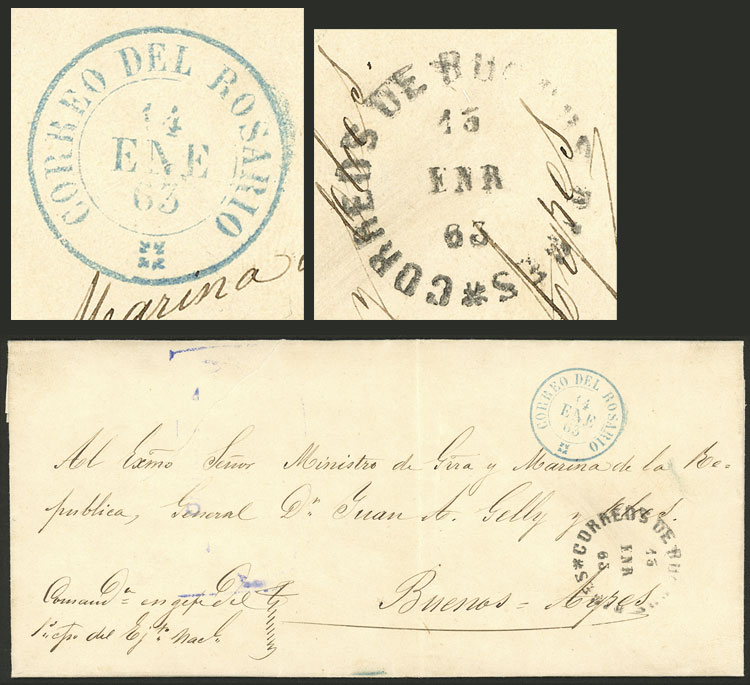 CORREO DEL ROSARIO
14
ENE
63
Marina
CORREOS DE BU
15
ENR
63
yres
CORREO DEL ROSARIO
14
ENE
63
Al Exmo Señor Ministro de Grra y Marina de la Re-
publica, General Dn Juan A. Gelly y Obes.
CORREOS DE BU
15
ENR
63
Buenos=Ayres
Comandte en gefe del
1er cpo del Ejto Nacl